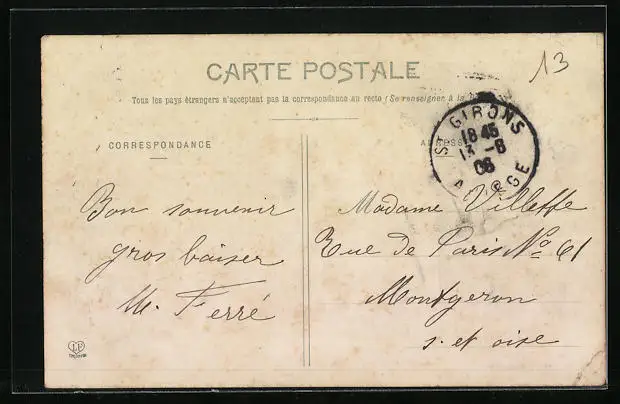 13
CARTE POSTALE
Tous les pays étrangers n'acceptent pas la correspondance au recto (Se renseigner à la
CORRESPONDANCE
ADRESSE
ST GIRONS
18 45
13 -8
08
ARIÈGE
Bon souvenir
gros baiser
M. Ferré
Madame Villette
Rue de Paris No 61
Montgeron
s. et oise